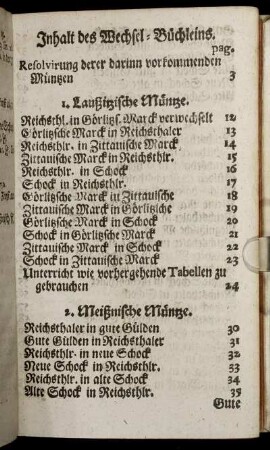 Inhalt des Wechsel-Büchleins.
pag.
Resolvirung derer darinn vorkommenden
Müntzen 3
1. Laußitzische Müntze.
Reichsthl. in Görlitzs. Marck verwechselt 12
Görlitzsche Marck in Reichsthaler 13
Reichsthlr. in Zittauische Marck 14
Zittauische Marck in Reichsthlr. 15
Reichsthlr. in Schock 16
Schock in Reichsthlr. 17
Görlitzsche Marck in Zittauische 18
Zittauische Marck in Görlitzsche 19
Görlitzsche Marck in Schock 20
Schock in Görlitzsche Marck 21
Zittauische Marck in Schock 22
Schock in Zittauische Marck 23
Unterricht wie vorhergehende Tabellen zu
gebrauchen 24
2. Meißnische Müntze.
Reichsthaler in gute Gülden 30
Gute Gülden in Reichsthaler 31
Reichsthlr. in neue Schock 32
Neue Schock in Reichsthlr. 53
Reichsthlr. in alte Schock 34
Alte Schock in Reichsthlr. 35
Gute